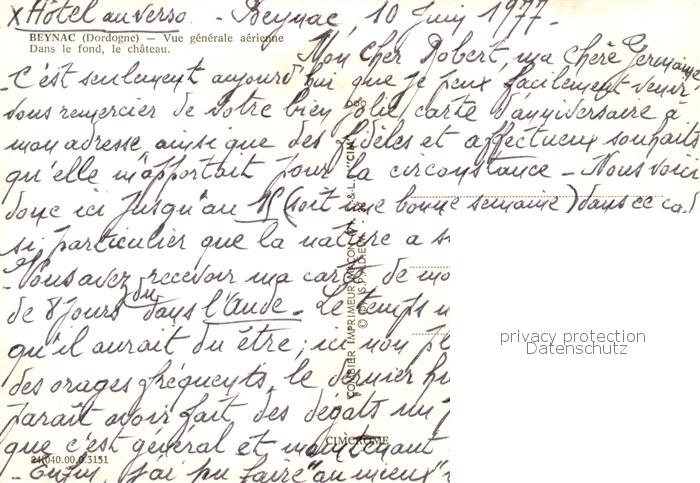 x Hôtel au verso. - Beynac, 10 Juin 1977 -
BEYNAC (Dordogne) — Vue générale aérienne
Dans le fond, le château.
Mon cher Robert, ma chère Germaine
- C'est seulement aujourd'hui que je peux facilement venir
vous remercier de votre bien jolie carte d'anniversaire à
mon adresse ainsi que des fidèles et affectueux souhaits
qu'elle m'apportait pour la circonstance - Nous voici
donc ici jusqu'au 15 (soit une bonne semaine) dans ce cad
si particulier que la nature a s
- Vous avez dû recevoir ma carte de mo
de 8 jours dans l'Aude - Le temps n
qu'il aurait du être; ici non pl
des orages fréquents, le dernier
paraît avoir fait des dégats
que c'est général et maintenant
- Enfin, j'ai pu faire "au mieux"
COMBIER IMPRIMEUR MACON
CIMCROME
24.040.00.0.3151
privacy protection
Datenschutz